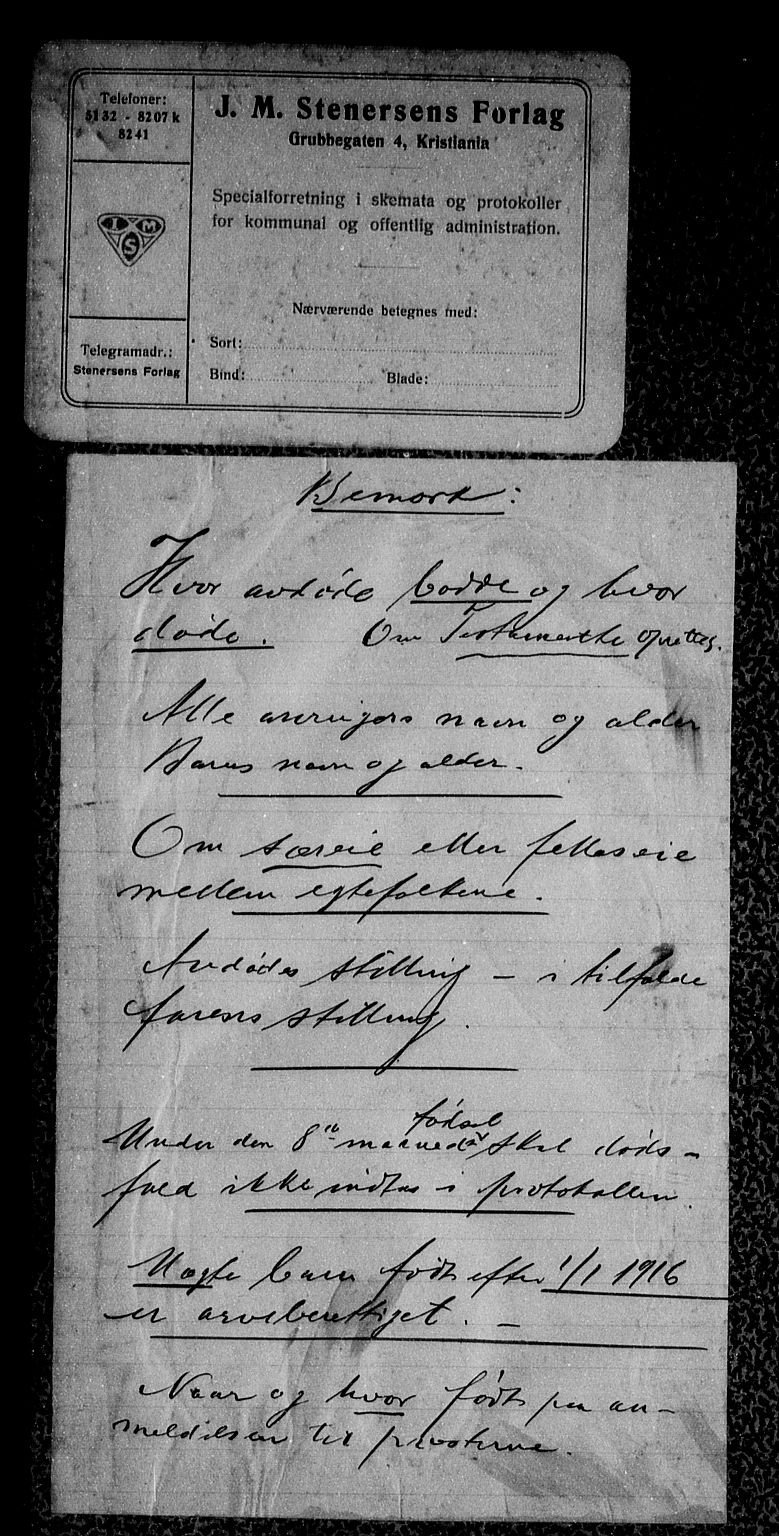 Telefoner:
5132 - 8207 k
8241
J. M. Stenersens Forlag
Grubbegaten 4, Kristiania
Specialforretning i skemata og protokoller
for kommunal og offentlig administration.
I M S
Nærværende betegnes med:
Telegramadr.:
Stenersens Forlag
Sort:
Bind: Blade:
Bemærk:
Hvor avdøde bodde og hvor
døde. Om Testamente oprettet.
Alle arvingers navn og alder
Barns navn og alder.
Om særeie eller felleseie
mellem egtefolkene.
Avdødes stilling – i tilfælde
farens stilling.
fødsel
Under den 8de maaned av skal døds-
fald ikke indtas i protokollen.
Uægte barn født efter 1/1 1916
er arveberettiget. –
Naar og hvor født paa an-
meldelsen til prosterne.